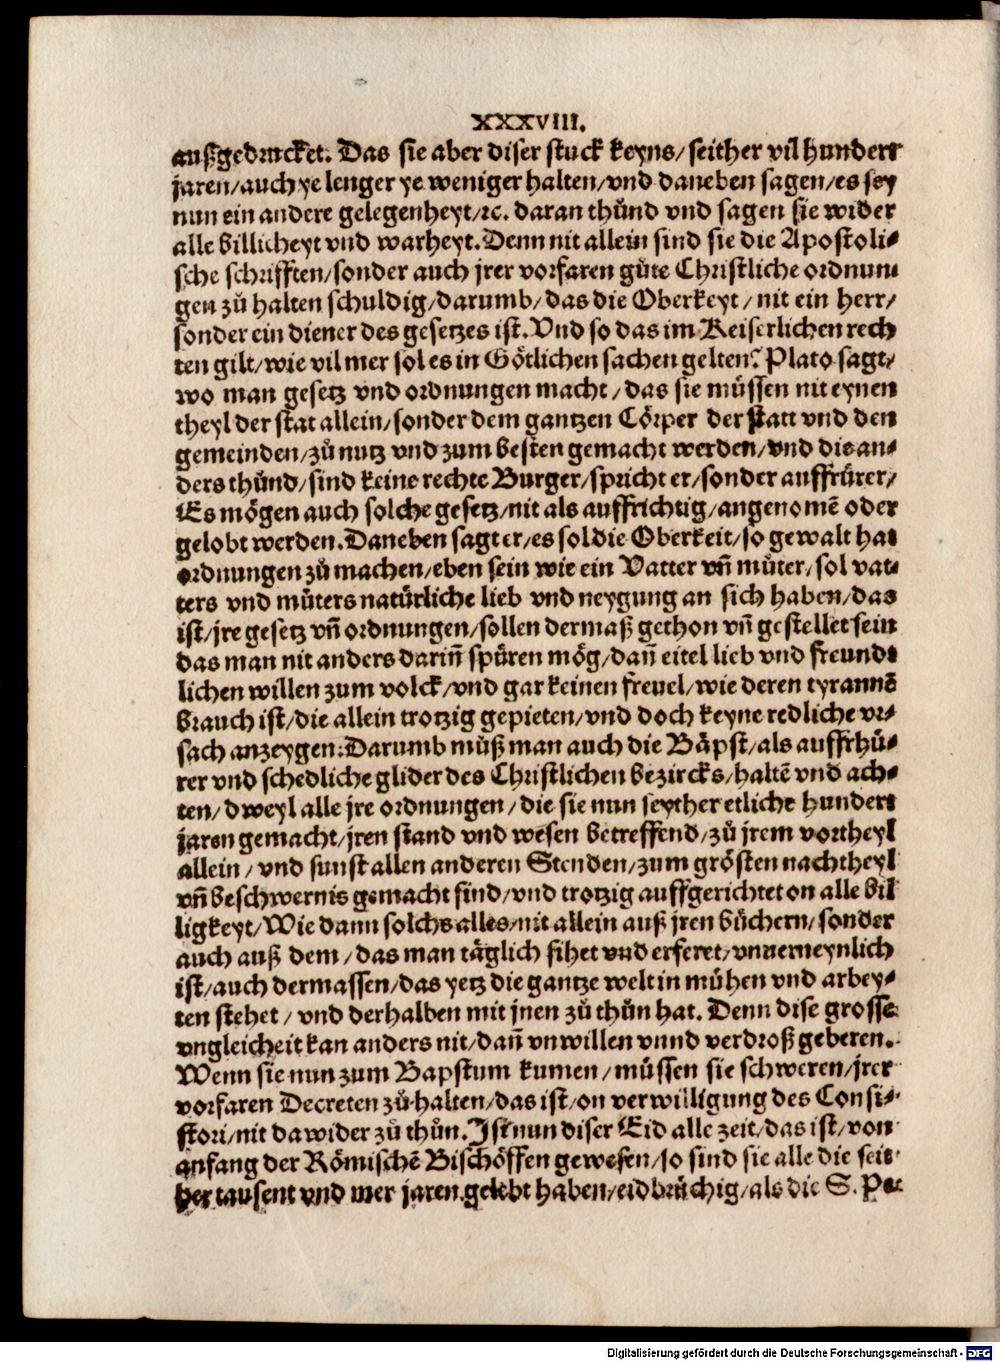 XXXVIII.
außgedrucket. Das sie aber diser stuck keyns/ seither vil hundert
jaren/ auch ye lenger ye weniger halten/ vnd daneben sagen/ es sey
nun ein andere gelegenheyt/ ꝛc. daran thůnd vnd sagen sie wider
alle billicheyt vnd warheyt. Denn nit allein sind sie die Apostoli-
sche schrifften/ sonder auch jrer vorfaren gůte Christliche ordnun-
gen zů halten schuldig/ darumb/ das die Oberkeyt/ nit ein herr/
sonder ein diener des gesetzes ist. Vnd so das im Keiserlichen rech
ten gilt/ wie vil mer sol es in Götlichen sachen gelten? Plato sagt/
wo man gesetz vnd ordnungen macht/ das sie müssen nit eynen
theyl der stat allein/ sonder dem gantzen Cörper der statt vnd den
gemeinden/ zů nutz vnd zum besten gemacht werden/ vnd die an-
ders thůnd/ sind keine rechte Burger/ spricht er/ sonder auffrürer/
Es mögen auch solche gesetz/ nit als auffrichtig/ angenomē oder
gelobt werden. Daneben sagt er/ es sol die Oberkeit/ so gewalt hat
ordnungen zů machen/ eben sein wie ein Vatter vñ můter/ sol vat-
ters vnd můters natürliche lieb vnd neygung an sich haben/ das
ist/ jre gesetz vñ ordnungen/ sollen dermaß gethon vñ gestellet sein
das man nit anders dariñ spüren mög/ dañ eitel lieb vnd freund-
lichen willen zum volck/ vnd gar keinen freuel/ wie deren tyrannē
brauch ist/ die allein trotzig gepieten/ vnd doch keyne redliche vr-
sach anzeygen. Darumb můß man auch die Bäpst/ als auffrhü-
rer vnd schedliche glider des Christlichen bezircks/ haltē vnd ach-
ten/ dweyl alle jre ordnungen/ die sie nun seyther etliche hundert
jaren gemacht/ jren stand vnd wesen betreffend/ zů jrem vortheyl
allein/ vnd sunst allen anderen Stenden/ zum grösten nachtheyl
vñ beschwernis gemacht sind/ vnd trotzig auffgerichtet on alle bil
ligkeyt/ Wie dann solchs alles/ nit allein auß jren büchern/ sonder
auch auß dem/ das man täglich sihet vnd erferet/ vnuerneynlich
ist/ auch dermassen/ das yetz die gantze welt in mühen vnd arbey-
ten stehet/ vnd derhalben mit jnen zů thůn hat. Denn dise grosse
vngleicheit kan anders nit/ dañ vnwillen vnnd verdroß geberen.
Wenn sie nun zum Bapstum kumen/ müssen sie schweren/ jrer
vorfaren Decreten zů halten/ das ist/ on verwilligung des Consi-
stori/ nit dawider zů thůn. Ist nun diser Eid alle zeit/ das ist/ von
anfang der Römischē Bischöffen gewesen/ so sind sie alle die seit-
her tausent vnd mer jaren gelebt haben/ eidbrüchig/ als die S. Pe-
Digitalisierung gefördert durch die Deutsche Forschungsgemeinschaft - DFG